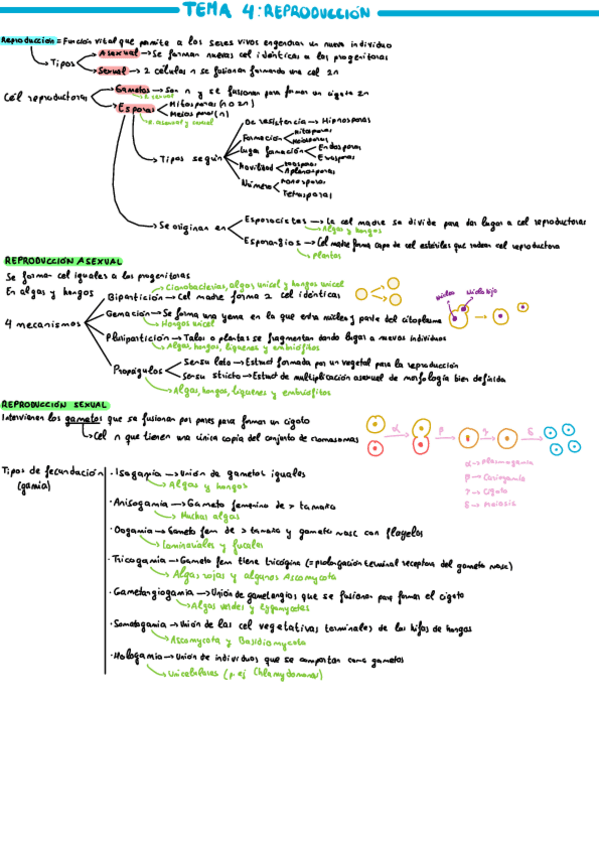 TEMA 4: REPRODUCCIÓN
Reproducción = Función vital que permite a los seres vivos engendrar un nuevo individuo
Tipos
Asexual → Se forman nuevas cel idénticas a los progenitores
Sexual → 2 células n se fusionan formando una cel 2n
Cél reproductora
Gametos → Son n y se fusionan para formar un cigoto 2n
R. sexual
Esporas
Mitosporas (n o 2n)
Meiosporas (n)
R. asexual y sexual
Tipos según
De resistencia → Hipnosporas
Formación
Mitosporas
Meiosporas
Lugar formación
Endosporas
Exosporas
Movilidad
Zoosporas
Aplanosporas
Número
Monosporas
Tetrasporas
Se originan en
Esporocistes → La cel madre se divide para dar lugar a cel reproductoras
Algas y hongos
Esporangios → Cel madre forma capa de cel estériles que rodean cel reproductora
Plantas
REPRODUCCIÓN ASEXUAL
Se forman cel iguales a los progenitores
En algas y hongos
4 mecanismos
Cianobacterias, algas unicel y hongos unicel
Bipartición → Cel madre forma 2 cel idénticas
Gemación → Se forma una yema en la que entra núcleo y parte del citoplasma
Hongos unicel
Núcleo
Núcleo hijo
Pluripartición → Talos o plantas se fragmentan dando lugar a nuevos individuos
Algas, hongos, líquenes y embriófitos
Propágulos
Sensu lato → Estruct formada por un vegetal para la reproducción
Sensu stricto → Estruct de multiplicación asexual de morfología bien definida
Algas, hongos, líquenes y embriófitos
REPRODUCCIÓN SEXUAL
Intervienen los gametos que se fusionan por pares para formar un cigoto
Cel n que tienen una única copia del conjunto de cromosomas
α β γ δ
α → Plasmogamia
β → Cariogamia
γ → Cigoto
δ → Meiosis
Tipos de fecundación (gamia)
· Isogamia → Unión de gametos iguales
Algas y hongos
· Anisogamia → Gameto femenino de > tamaño
Muchas algas
· Oogamia → Gameto fem de > tamaño y gameto masc con flagelos
Laminariales y fucales
· Tricogamia → Gameto fem tiene tricógina (= prolongación terminal receptora del gameto masc)
Algas rojas y algunos Ascomycota
· Gametangiogamia → Unión de gametangios que se fusionan para formar el cigoto
Algas verdes y zygomycetes
· Somatogamia → Unión de las cel vegetativas terminales de las hifas de hongos
Ascomycota y Basidiomycota
· Hologamia → Unión de individuos que se comportan como gametos
Unicelulares (p ej Chlamydomonas)